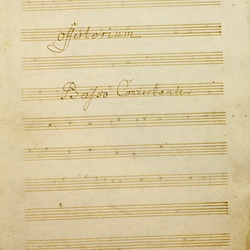 Offertorium
Basso Concertante.